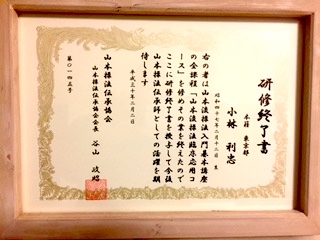 研修終了書
本籍 東京都
小林 利忠
昭和四十七年二月十三日 生
右の者は山本流揉法入門基本講座
の全課程「山本流揉法臨床応用コ
ース」を修めその業を終えたので
ここに研修終了書を授与して今後
山本揉法伝承師としての活躍を期
待します
平成三十年二月二日
山本揉法伝承協会
山本揉法伝承協会会長 谷山
第〇一四三号